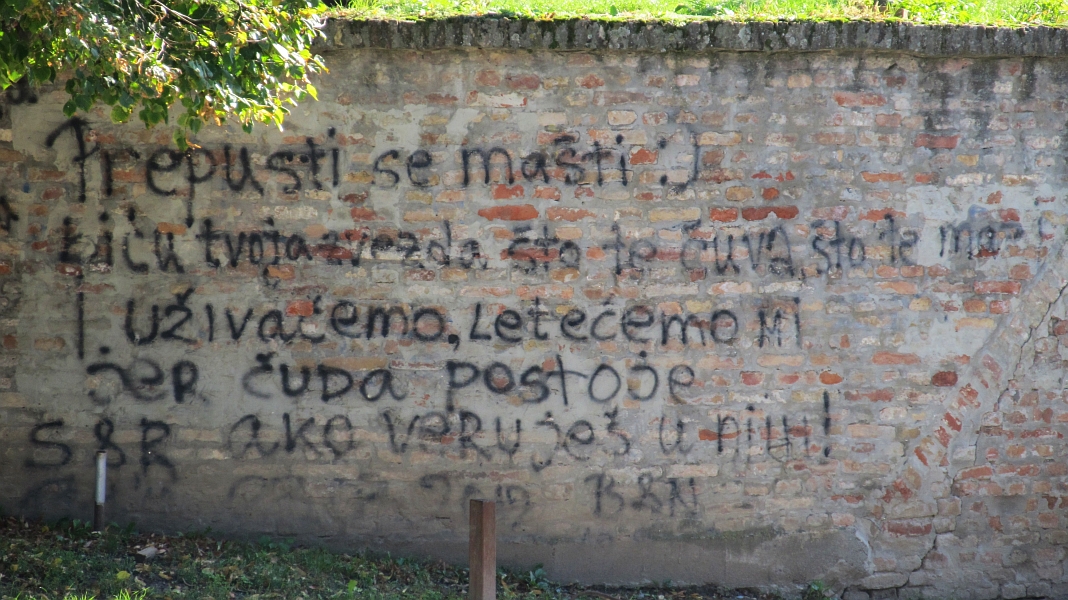 Prepusti se mašti :)
Biću tvoja zvezda što te čuva, što te mazi
I uživaćemo, Letećemo mi
jer čuda postoje
S&R ako veruješ u njih!
B&N